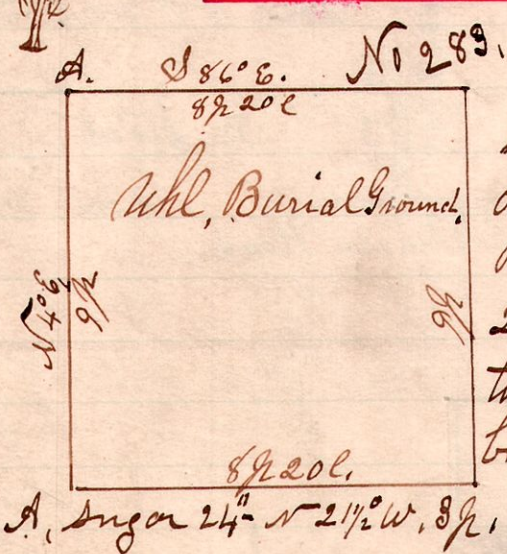 A. S 86° E. No 283.
8p 20l
Uhl, Burial Ground.
N 4° E
9p
9p
8p 20l.
A, sugar 24" N 21½° W, 3p.